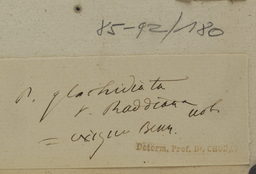 85-92/180
P. glochidiata
v. Raddiana nob.
= exigua Benn.
Déterm. Prof. Dr. CHODAT